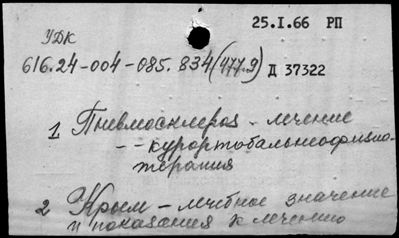 25.I.66 РП
УДК
616.24-004-085.834(477.9) Д 37322
1 Пневмосклероз - лечение
-- курортобальнеофизио-
терапия
2 Крым - лечебное значение
и показания к лечению